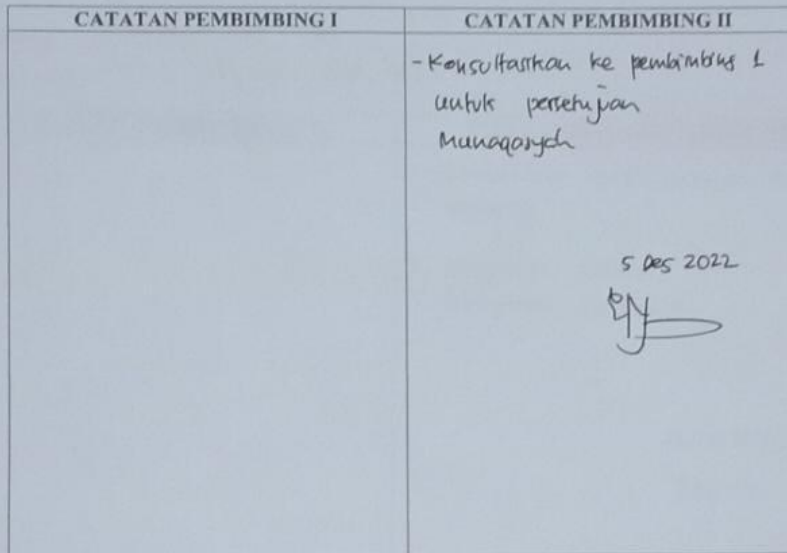 CATATAN PEMBIMBING I
CATATAN PEMBIMBING II
- Konsultasikan ke pembimbing 1
untuk persetujuan
Munaqasyah
5 Des 2022